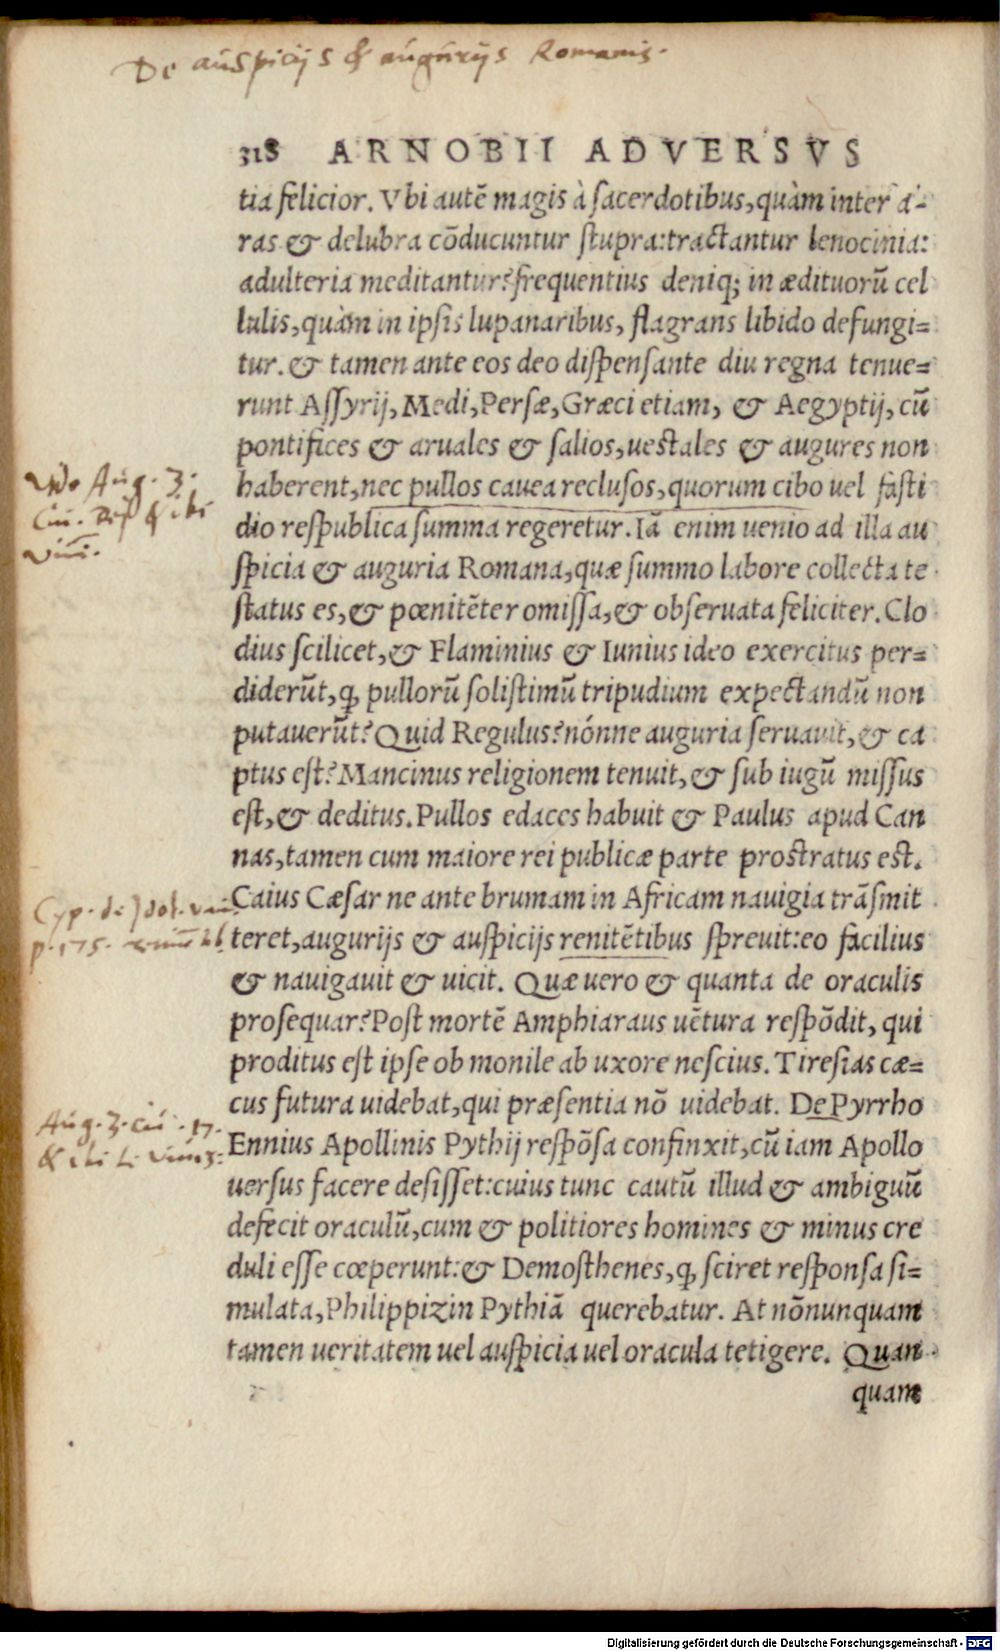 De auspicijs & augurijs Romanis.
318 ARNOBII ADVERSVS
tia felicior. Vbi autẽ magis à sacerdotibus, quàm inter a-
ras & delubra cõducuntur stupra: tractantur lenocinia:
adulteria meditantur? frequentius deniq; in ædituorũ cel
lulis, quàm in ipsis lupanaribus, flagrans libido defungi=
tur. & tamen ante eos deo dispensante diu regna tenue=
runt Assyrij, Medi, Persæ, Græci etiam, & Aegyptij, cũ
pontifices & aruales & salios, uestales & augures non
haberent, nec pullos cauea reclusos, quorum cibo uel fasti
dio respublica summa regeretur. Iã enim uenio ad illa au
spicia & auguria Romana, quæ summo labore collecta te
status es, & pœnitẽter omissa, & obseruata feliciter. Clo
dius scilicet, & Flaminius & Iunius ideo exercitus per=
diderũt, ꝙ pullorũ solistimũ tripudium expectandũ non
putauerũt? Quid Regulus? nónne auguria seruauit, & ca
ptus est? Mancinus religionem tenuit, & sub iugũ missus
est, & deditus. Pullos edaces habuit & Paulus apud Can
nas, tamen cum maiore rei publicæ parte prostratus est.
Caius Cæsar ne ante brumam in Africam nauigia trãsmit
teret, augurijs & auspicijs renitẽtibus spreuit: eo facilius
& nauigauit & uicit. Quæ uero & quanta de oraculis
prosequar? Post mortẽ Amphiaraus uẽtura respõdit, qui
proditus est ipse ob monile ab uxore nescius. Tiresias cæ=
cus futura uidebat, qui præsentia nõ uidebat. De Pyrrho
Ennius Apollinis Pythij respõsa confinxit, cũ iam Apollo
uersus facere desisset: cuius tunc cautũ illud & ambiguũ
defecit oraculũ, cum & politiores homines & minus cre
duli esse cœperunt: & Demosthenes, ꝙ sciret responsa si=
mulata, Philippizin Pythiã querebatur. At nõnunquam
tamen ueritatem uel auspicia uel oracula tetigere. Quan
quam
Aug. 3.
& ibi
Cyp. de Idol. van.
p. 175.
Aug. 3. ciu. 17.
& ibi
Digitalisierung gefördert durch die Deutsche Forschungsgemeinschaft - DFG